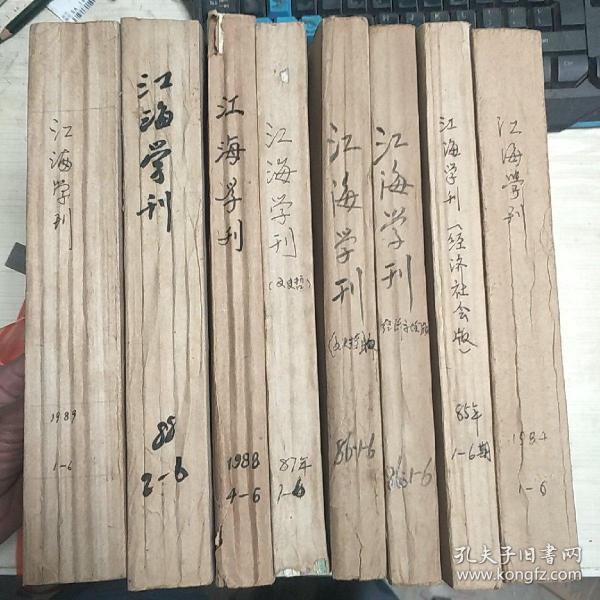 江海学刊
1989
1-6
江海学刊
88
2-6
江海学刊
1988
4-6
江海学刊
(文史哲)
87年
1-6
江海学刊
(文史哲版)
86 1-6
江海学刊
经济社会版
86 1-6
江海学刊(经济社会版)
85年
1-6期
江海学刊
1984
1-6
孔夫子旧书网
www.kongfz.com